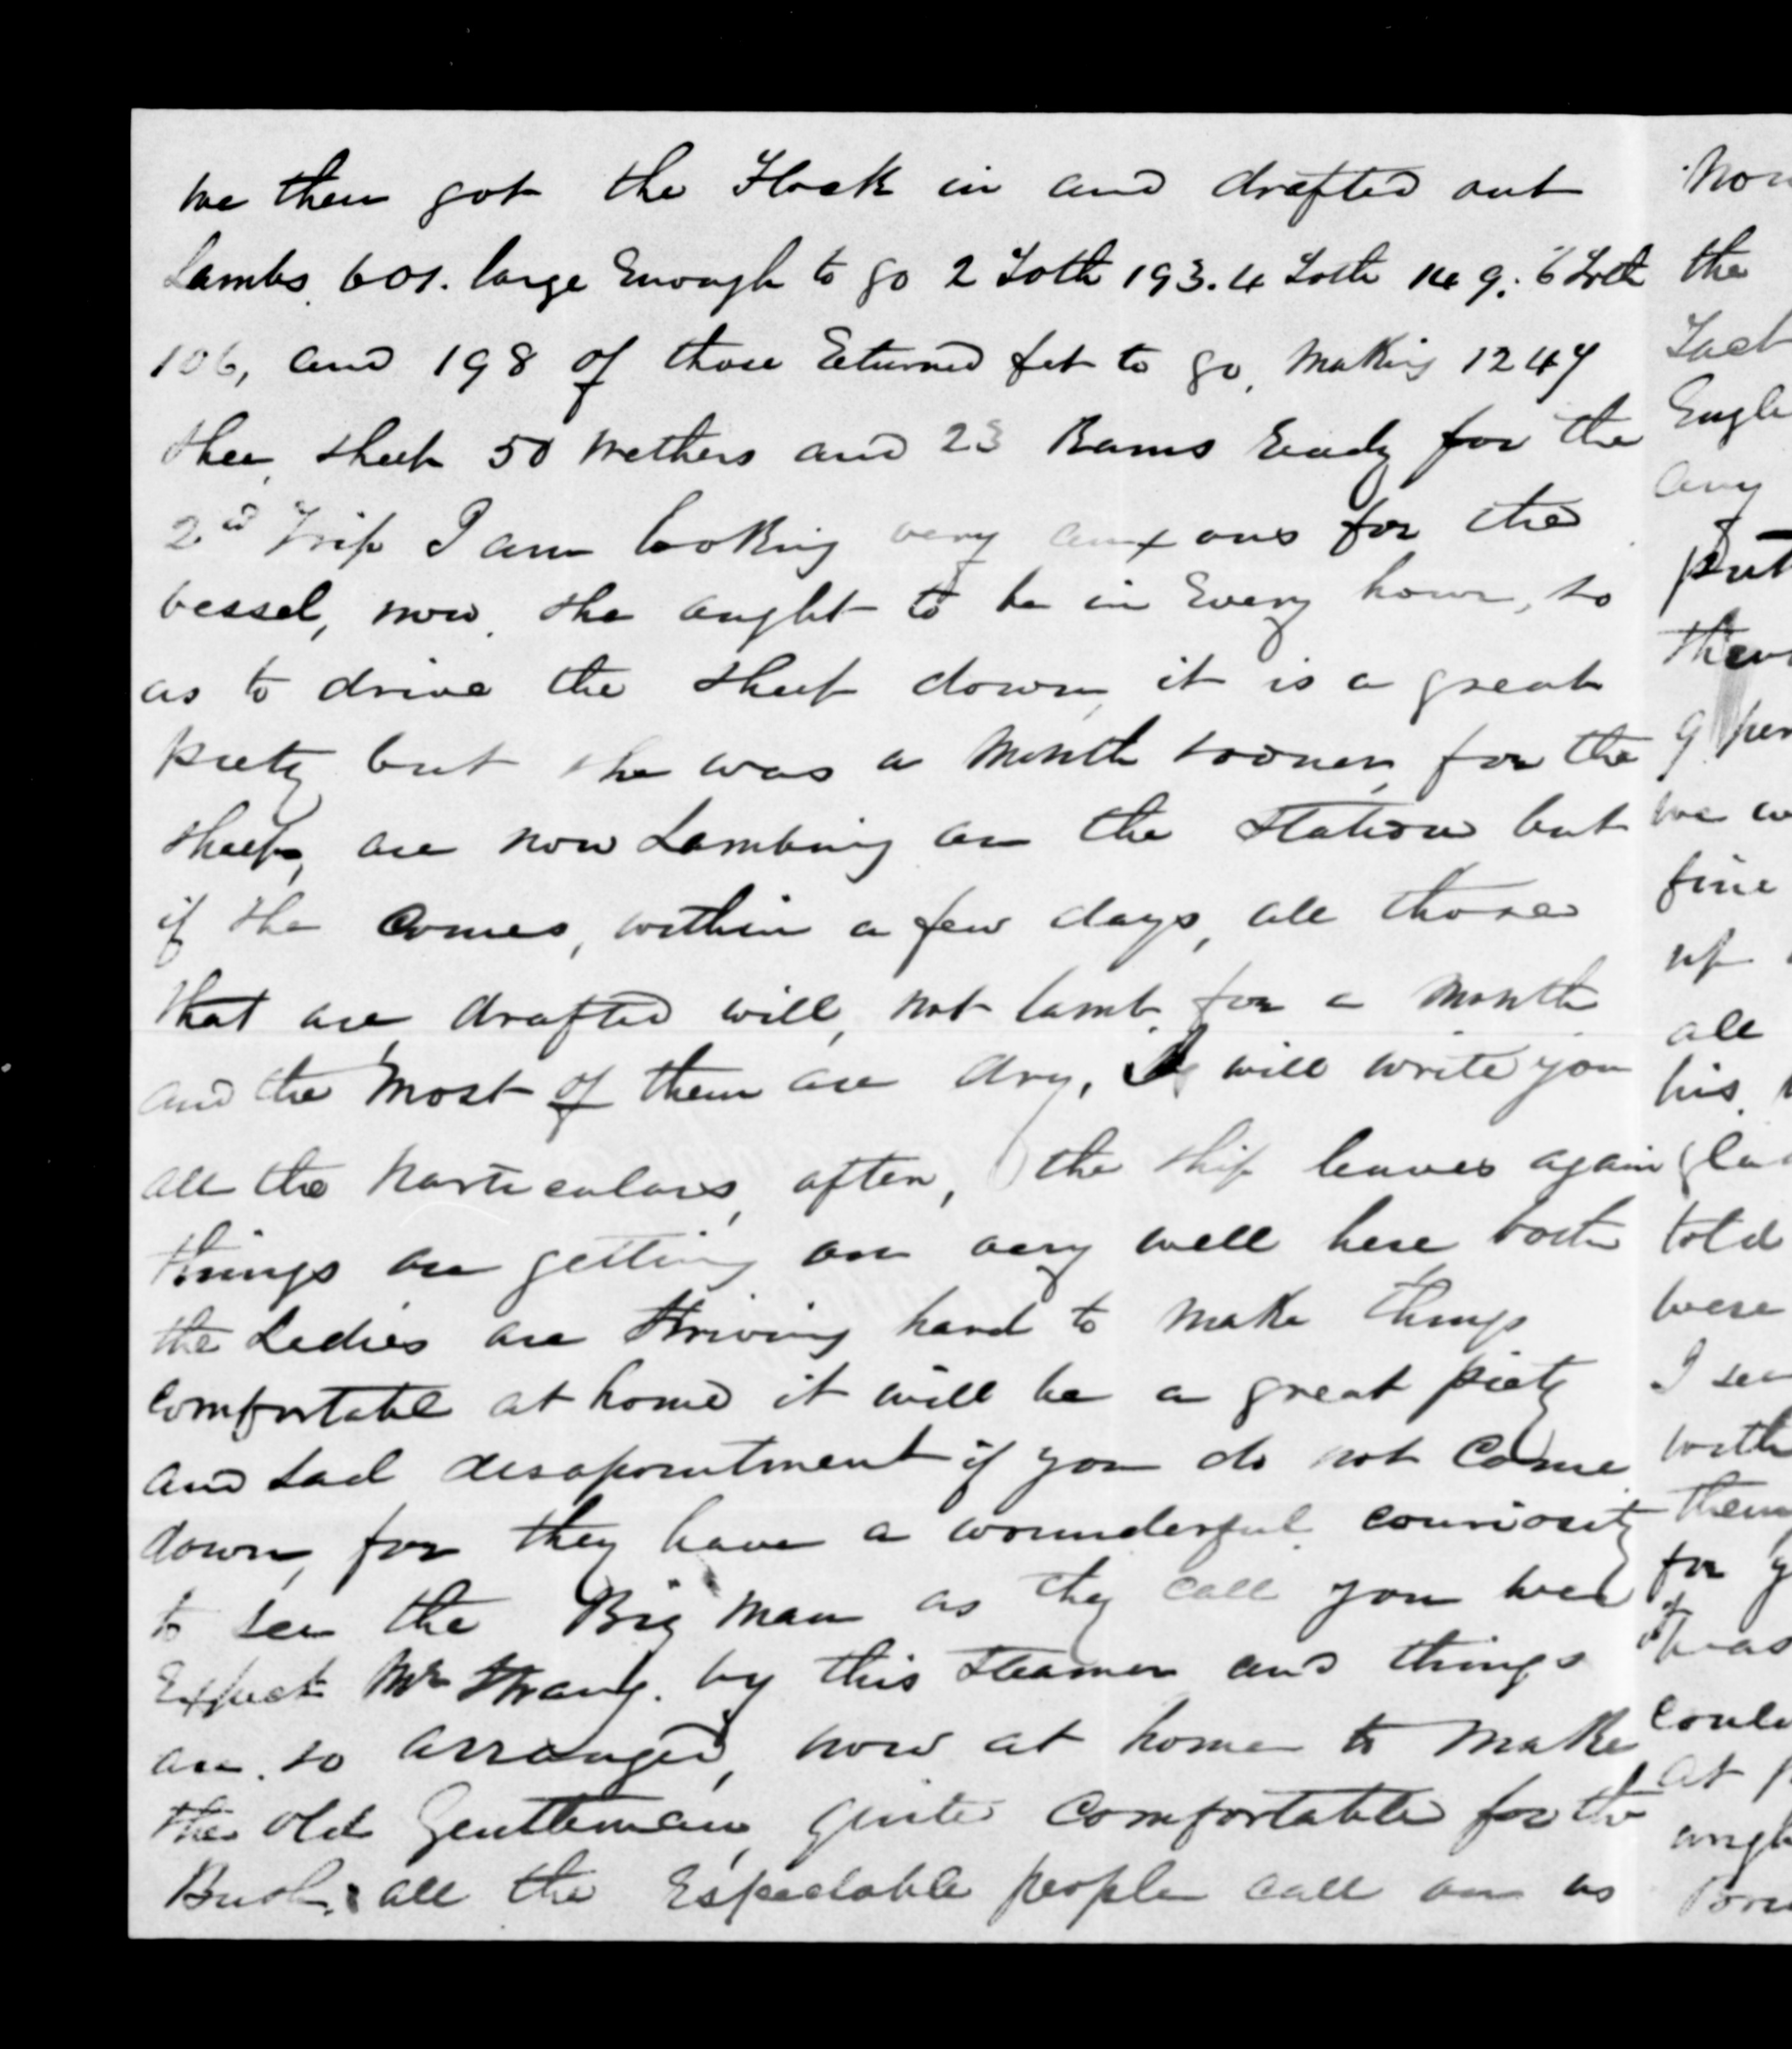 we then got the Flock in and drafted out
Lambs. 601. large Enough to go 2 Toth 193. 4 Toth 149: 6 Toth
106, and 198 of those Returned fit to go, Making 1247
shee, sheep 50 Wethers and 23 Rams Ready for the
2nd Trip I am looking very anxous for the
vessel, now, she aught to be in Every hour, so
as to drive the sheep down, it is a great
piety but she was a Month sooner, for the
sheep, are now Lambing on the Station but
if she Comes, within a few days, all those
that are drafted will, not lamb for a Month
and the Most of them are dry, I will write you
all the particulars, after, the ship leaves again
things are getting on very well here both
the Ladies are striving hard to Make things
Comfortable at home it will be a great piety
and sad disapointment if you do not Come
down, for they have a wounderful couriosity
to see the Big Man as they call you wee
Expect Mr Strang. by this Steamer and things
are. so arranged, now at home to Make
the old Gentleman, quite Comfortable for the
Bush. all the Respectable people call on us
Now
the
Fact
Engle
any
put
them

we w
fine
up
all
his
gla
told
were
I see
with
them
for y
was
could
at p
ough